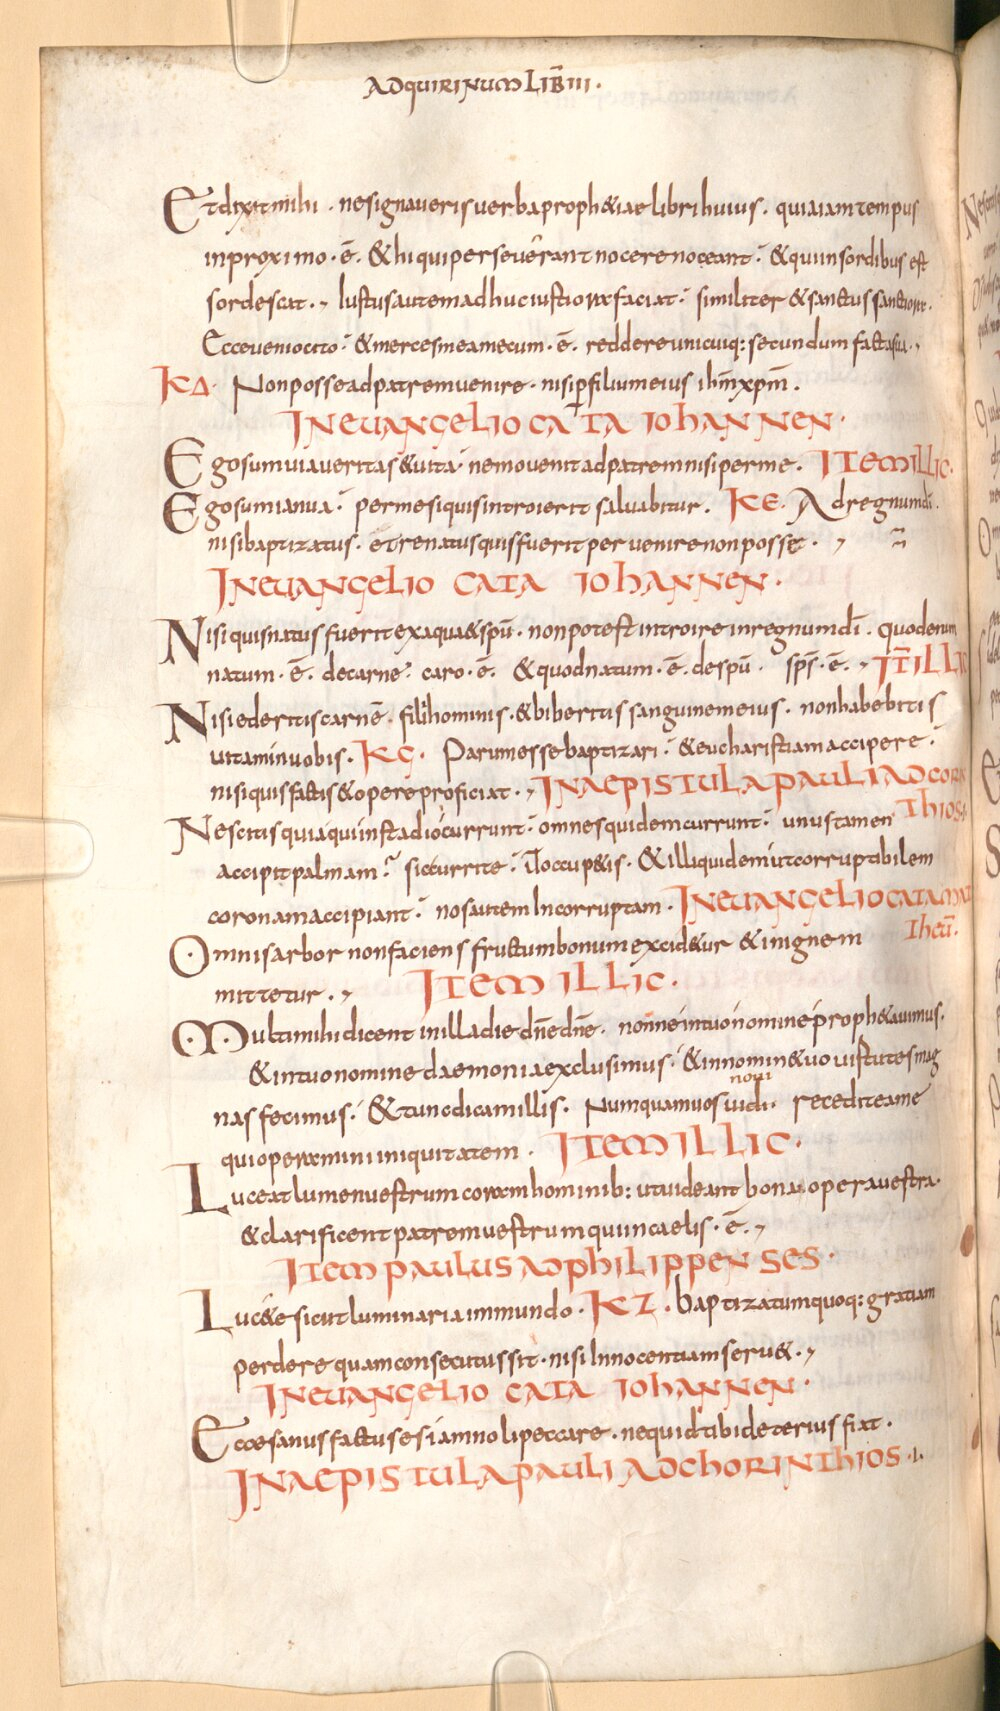 ADquiRiNum LIB̄ III.
Et dixit mihi . ne signaveris verba proph&iae libri huius . quia iam tempus
in proximo . ē . & hi qui perseverant nocere noceant . & qui in sordibus est
sordescat . , Iustus autem adhuc iustiora faciat . similiter & sanctus sanctiora .
Ecce venio cito . & merces mea mecum . ē . reddere unicuiq: secundum facta sua . ,
KΔ . Non posse ad patrem venire . nisi per filium eius ihm̄ xpm̄ .
IN EUANGELIO CATA IOHANNEN .
Ego sum via veritas & vita nemo venit ad patrem nisi per me . ITEM ILLIC .
Ego sum ianua . per me si quis introierit salvabitur . KE . Ad regnum dī .
nisi baptizatus . et renatus quis fuerit pervenire non posse . ,
IN EUANGELIO CATA IOHANNEN .
Nisi quis natus fuerit ex aqua & spū . non potest introire in regnum dī . quod enim
natum . ē . de carne caro . ē . & quod natum . ē . de spū . sps̄ . ē . , IT̄ ILLIC
Nisi ederitis carnē . filii hominis . & biberitis sanguinem eius . non habebitis
vitam in vobis . KϚ . Parum esse baptizari . & eucharistiam accipere .
nisi quis factis & opere proficiat . , IN AEPISTULA PAULI AD CORIN
THIOS .
Nescitis quia qui in stadio currunt . omnes quidem currunt . unus tamen
accipit palmam . sic currite . ut occup&is . & illi quidem ut corruptibilem
coronam accipiant . nos autem incorruptam . IN EUANGELIO CATA MAT
Theū .
Omnis arbor non faciens fructum bonum excid&ur & in ignem
mittetur . , ITEM ILLIC .
Multi mihi dicent in illa die dn̄e dn̄e . nonne in tuo nomine proph&avimus .
& in tuo nomine daemonia exclusimus . & in nomin& uo virtutes mag
novi
nas fecimus . & tunc dicam illis . Numquam vos vidi . recedite a me
qui operamini iniquitatem . ITEM ILLIC .
Luceat lumen vestrum coram hominib: ut videant bona opera vestra .
& clarificent patrem vestrum qui in caelis . ē . ,
ITEM PAULUS AD PHILIPPENSES .
Luc&e sicut luminaria in mundo . KZ . baptizatum quoq: gratiam
perdere quam consecutus sit . nisi innocentiam serv& . ,
IN EUANGELIO CATA IOHANNEN .
Ecce sanus factus es iam noli peccare . ne quid tibi deterius fiat .
IN AEPISTULA PAULI AD CHORINTHIOS . I .